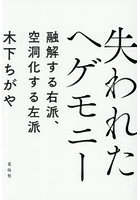 失われた
ヘゲモニー
融解する右派、
空洞化する左派
木下ちがや